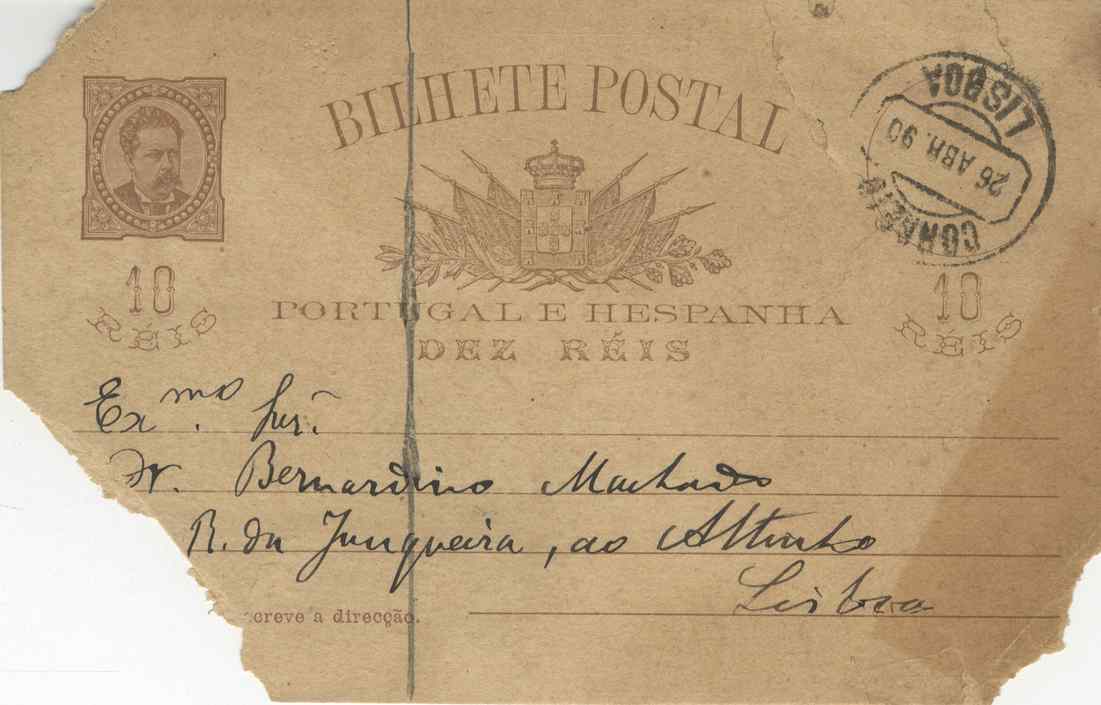 BILHETE POSTAL
CORREIO
26 ABR. 90
LISBOA
10
RÉIS
10
RÉIS
PORTUGAL E HESPANHA
DEZ RÉIS
Ex.mo Snr.
Dr. Bernardino Machado
R. da Junqueira, ao Altinho
Lisboa
screve a direcção.